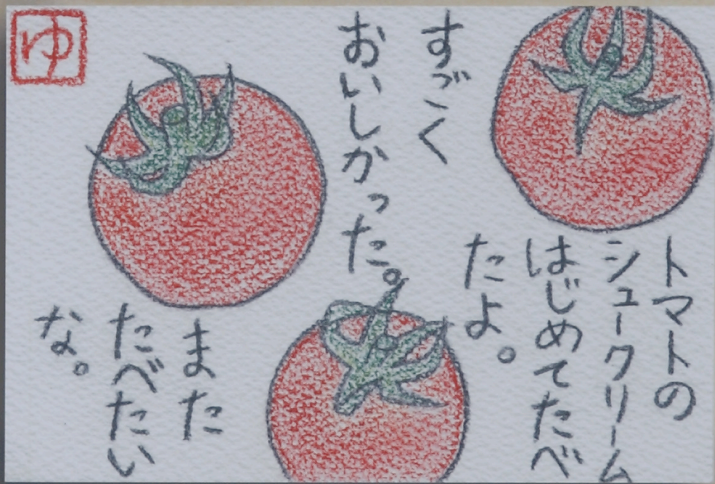 トマトの
シュークリーム
はじめてたべ
たよ。
すごく
おいしかった。
また
たべたい
な。
ゆ